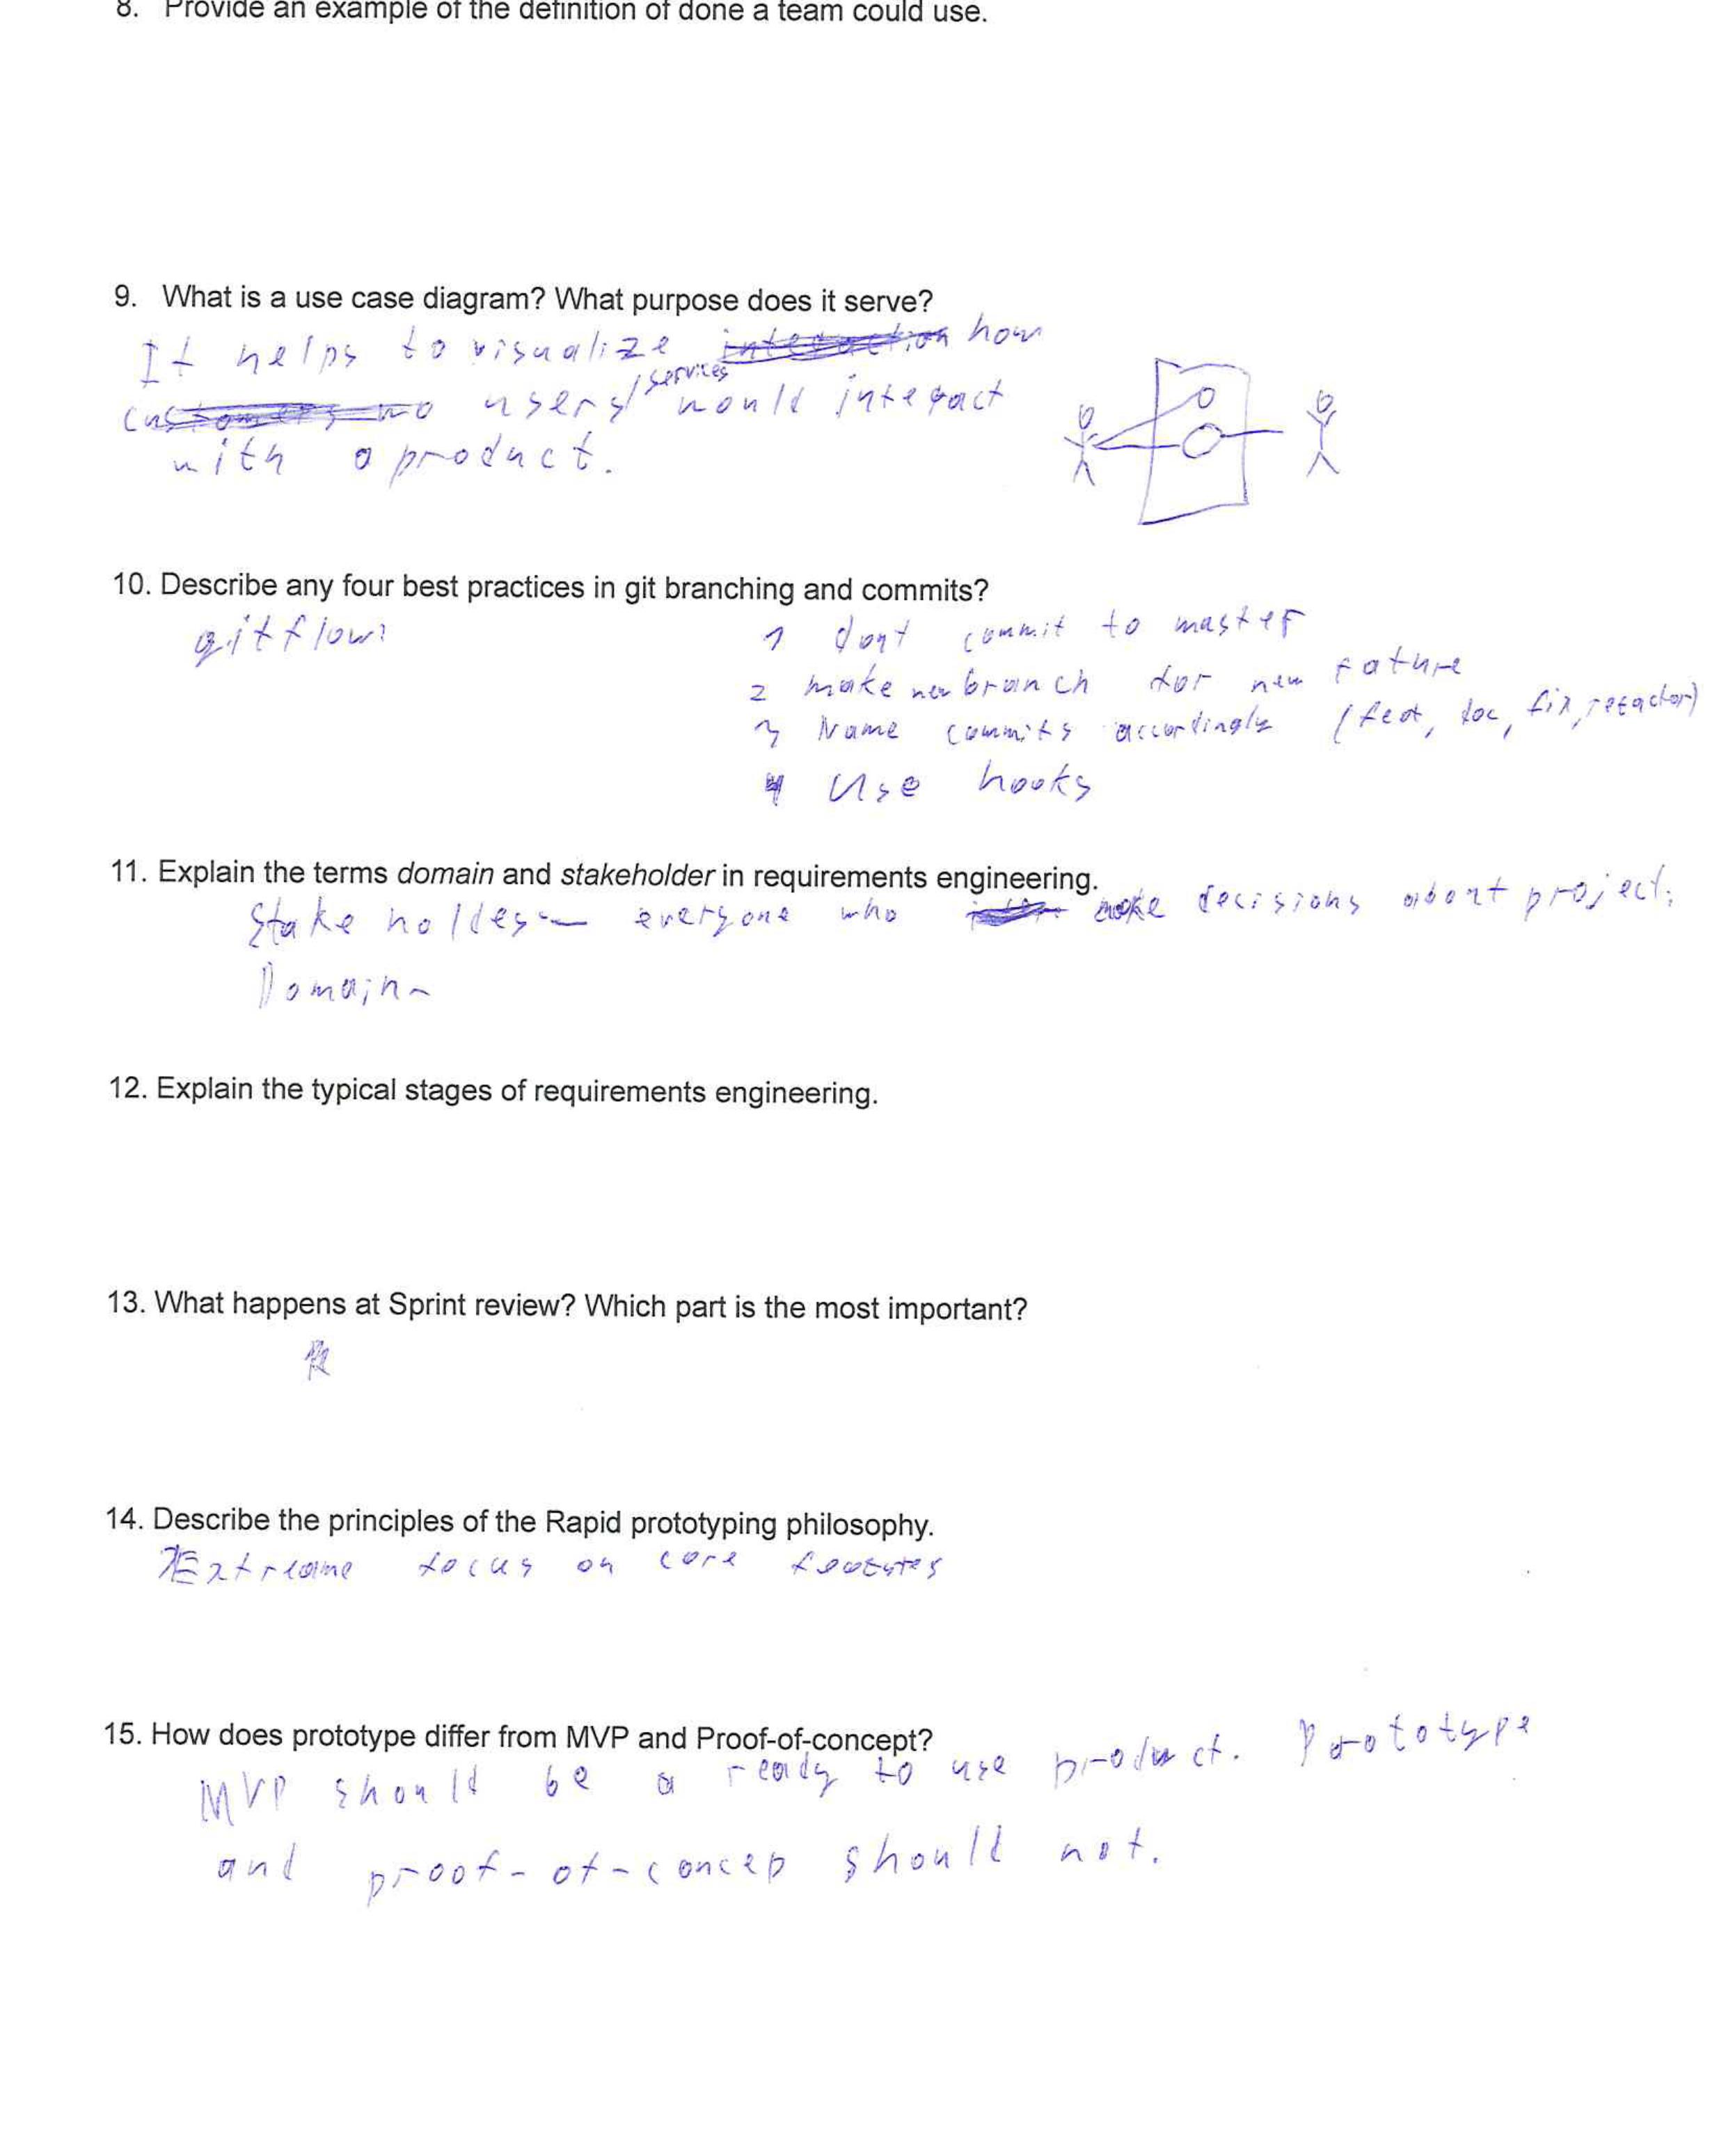 8. Provide an example of the definition of done a team could use.
9. What is a use case diagram? What purpose does it serve?
It helps to visualize interaction how
customers wo users/services would interact
with a product.
10. Describe any four best practices in git branching and commits?
gitflow:
1 dont commit to master
2 make new branch for new fature
3 Name commits accordingly (feat, doc, fix, refactor)
4 Use hooks
11. Explain the terms domain and stakeholder in requirements engineering.
Stake holders — everyone who make decisions about project.
Domain -
12. Explain the typical stages of requirements engineering.
13. What happens at Sprint review? Which part is the most important?
14. Describe the principles of the Rapid prototyping philosophy.
Extreame focus on core features
15. How does prototype differ from MVP and Proof-of-concept?
MVP should be a ready to use product. Prototype
and proof-of-concep should not.